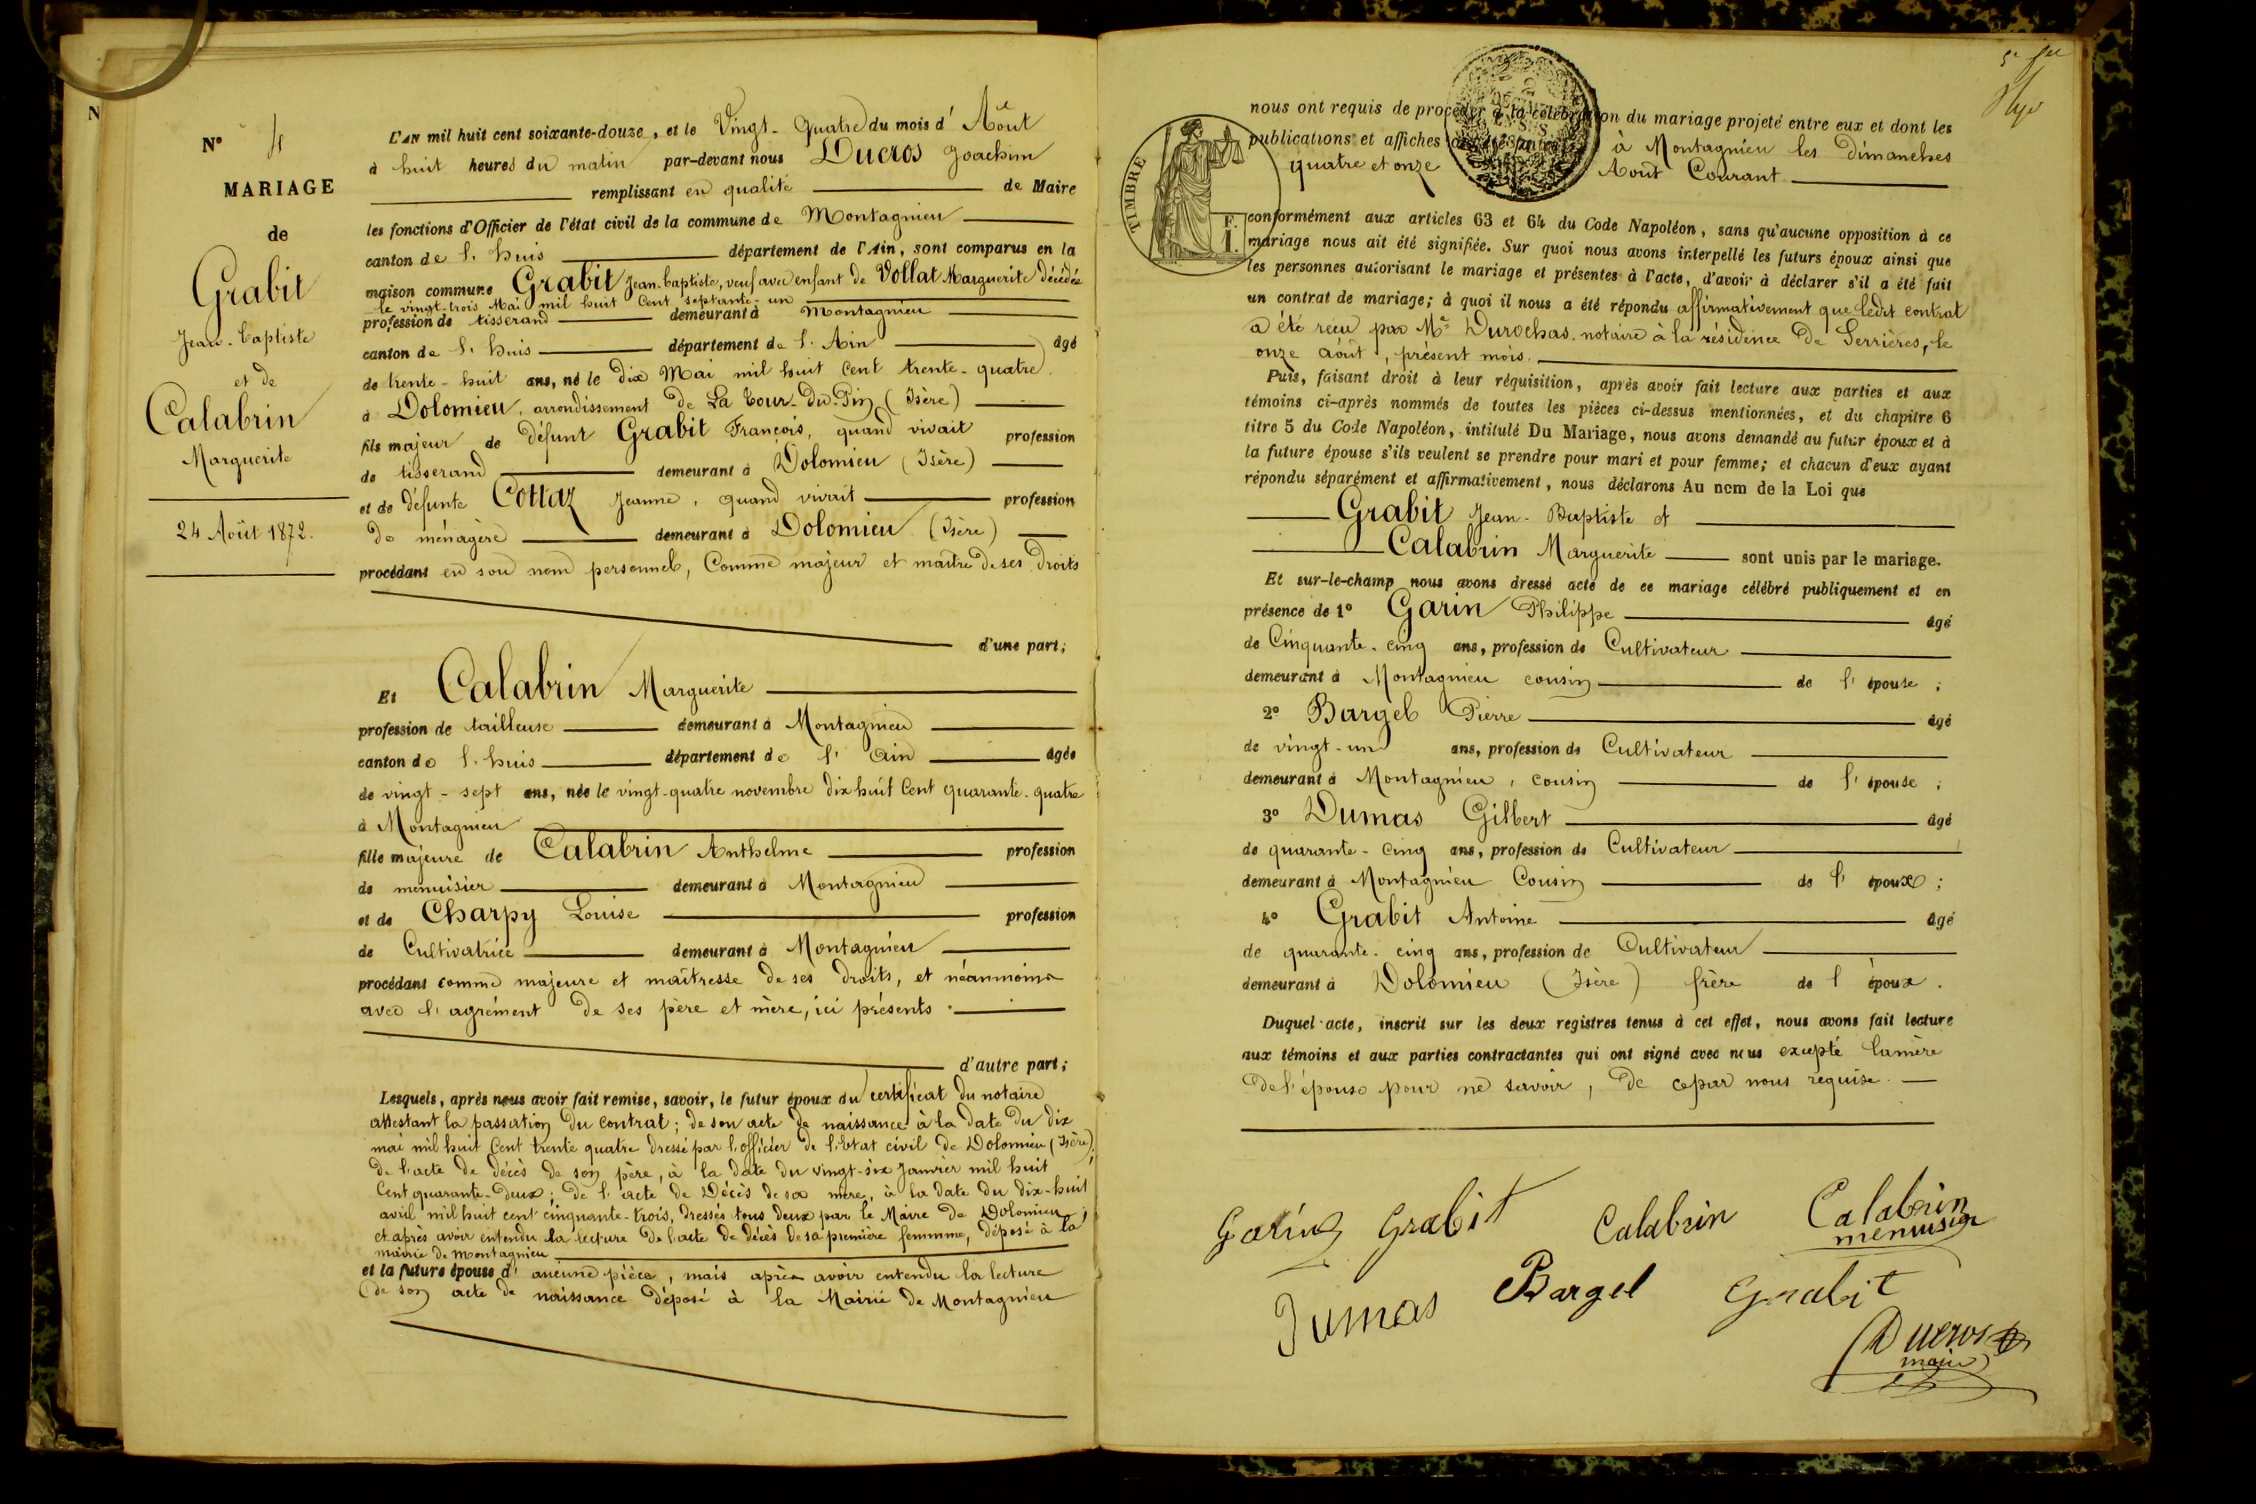 N
N° 4
MARIAGE
de
Grabit
Jean-Baptiste
et de
Calabrin
Marguerite
24 Août 1872.
L'AN mil huit cent soixante-douze, et le Vingt-Quatre du mois d'Août
à huit heures du matin par-devant nous Ducros Joachim
remplissant en qualité de Maire
les fonctions d'Officier de l'état civil de la commune de Montagnieu
canton de l'huis département de l'Ain, sont comparus en la
maison commune Grabit Jean-baptiste, veuf avec enfant de Vollat Marguerite décédée
le vingt-trois Mai mil huit Cent septante-un
profession de tisserand demeurant à Montagnieu
canton de l'huis département de l'Ain âgé
de trente-huit ans, né le dix Mai mil huit Cent trente-quatre
à Dolomieu, arrondissement de La Tour-du-Pin (Isère)
fils majeur de défunt Grabit François, quand vivait profession
de tisserand demeurant à Dolomieu (Isère)
et de défunte Cottaz Jeanne, quand vivait profession
de ménagère demeurant à Dolomieu (Isère)
procédant en son nom personnel, Comme majeur et maître de ses droits
d'une part;
Et Calabrin Marguerite
profession de tailleuse demeurant à Montagnieu
canton de l'huis département de l'Ain âgée
de vingt-sept ans, née le vingt-quatre novembre dix huit Cent quarante-quatre
à Montagnieu
fille majeure de Calabrin Anthelme profession
de menuisier demeurant à Montagnieu
et de Charpy Louise profession
de Cultivatrice demeurant à Montagnieu
procédant comme majeure et maîtresse de ses droits, et néanmoins
avec l'agrément de ses père et mère, ici présents.
d'autre part;
Lesquels, après nous avoir fait remise, savoir, le futur époux du certificat du notaire
attestant la passation du contrat; de son acte de naissance à la date du dix
mai mil huit Cent trente quatre dressé par l'officier de l'Etat civil de Dolomieu (Isère);
de l'acte de décès de son père, à la date du vingt-six Janvier mil huit
Cent quarante-deux; de l'acte de Décès de sa mère, à la date du dix-huit
avril mil huit cent cinquante-trois, dressés tous deux par le Maire de Dolomieu;
et après avoir entendu la lecture de l'acte de décès de sa première femme, déposé à la
mairie de Montagnieu
et la future épouse d'aucune pièce, mais après avoir entendu la lecture
de son acte de naissance déposé à la Mairie de Montagnieu
TIMBRE
F. I.
nous ont requis de procéder à la célébration du mariage projeté entre eux et dont les
publications et affiches ont été faites à Montagnieu les dimanches
quatre et onze Août Courant
conformément aux articles 63 et 64 du Code Napoléon, sans qu'aucune opposition à ce
mariage nous ait été signifiée. Sur quoi nous avons interpellé les futurs époux ainsi que
les personnes autorisant le mariage et présentes à l'acte, d'avoir à déclarer s'il a été fait
un contrat de mariage; à quoi il nous a été répondu affirmativement que ledit contrat
a été reçu par Me Durochas, notaire à la résidence de Serrières, le
onze août, présent mois.
Puis, faisant droit à leur réquisition, après avoir fait lecture aux parties et aux
témoins ci-après nommés de toutes les pièces ci-dessus mentionnées, et du chapitre 6
titre 5 du Code Napoléon, intitulé Du Mariage, nous avons demandé au futur époux et à
la future épouse s'ils veulent se prendre pour mari et pour femme; et chacun d'eux ayant
répondu séparément et affirmativement, nous déclarons Au nom de la Loi que
Grabit Jean-Baptiste et
Calabrin Marguerite sont unis par le mariage.
Et sur-le-champ nous avons dressé acte de ce mariage célébré publiquement et en
présence de 1° Garin Philippe âgé
de Cinquante-cinq ans, profession de Cultivateur
demeurant à Montagnieu cousin de l'épouse;
2° Bargel Pierre âgé
de vingt-un ans, profession de Cultivateur
demeurant à Montagnieu, cousin de l'épouse;
3° Dumas Gilbert âgé
de quarante-cinq ans, profession de Cultivateur
demeurant à Montagnieu Cousin de l'époux;
4° Grabit Antoine âgé
de quarante-cinq ans, profession de Cultivateur
demeurant à Dolomieu (Isère) frère de l'époux.
Duquel acte, inscrit sur les deux registres tenus à cet effet, nous avons fait lecture
aux témoins et aux parties contractantes qui ont signé avec nous excepté la mère
de l'épouse pour ne savoir, de ce par nous requise.
Garin Grabit Calabrin Calabrin
menuisier
Dumas Bargel Grabit
Ducros
maire